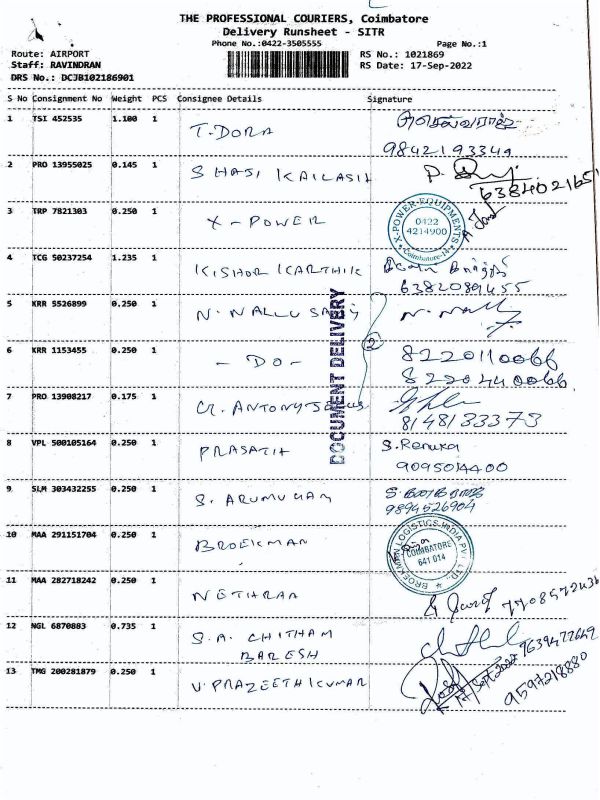 THE PROFESSIONAL COURIERS, Coimbatore
Delivery Runsheet - SITR
Phone No.:0422-3505555 Page No.:1
Route: AIRPORT RS No.: 1021869
Staff: RAVINDRAN RS Date: 17-Sep-2022
DRS No.: DCJB102186901
S No Consignment No Weight PCS Consignee Details Signature
1 TSI 452535 1.100 1 T. DORA செல்வராஜ்
9842193349
2 PRO 13955025 0.145 1 SHASI KAILASH P.
6384021651
3 TRP 7821303 0.250 1 X-POWER
X-POWER EQUIPMENTS
0422
4214900
Coimbatore-14
4 TCG 50237254 1.235 1 KISHOR KARTHIK
6382089455
5 KRR 5526899 0.250 1 N. NALLUSAMY
DOCUMENT DELIVERY
2
6 KRR 1153455 0.250 1 - DO - 8220110066
8220440066
7 PRO 13908217 0.175 1 ANTONY
8148133373
8 VPL 500105164 0.250 1 PRASATH S. Renuka
9095014400
9 SLM 303432255 0.250 1 S. ARUMUGAM
9894526904
10 MAA 291151704 0.250 1 BROEKMAN
BROEKMAN LOGISTICS INDIA PVT. LTD.
COIMBATORE
641 014
11 MAA 282718242 0.250 1 NETHRAA
12 NGL 6870883 0.735 1 S.A. CHITHAM
BARESH
9639477649
13 TMG 200281879 0.250 1 V. PRAZEETHKUMAR
17/Sept/2022
9597218880